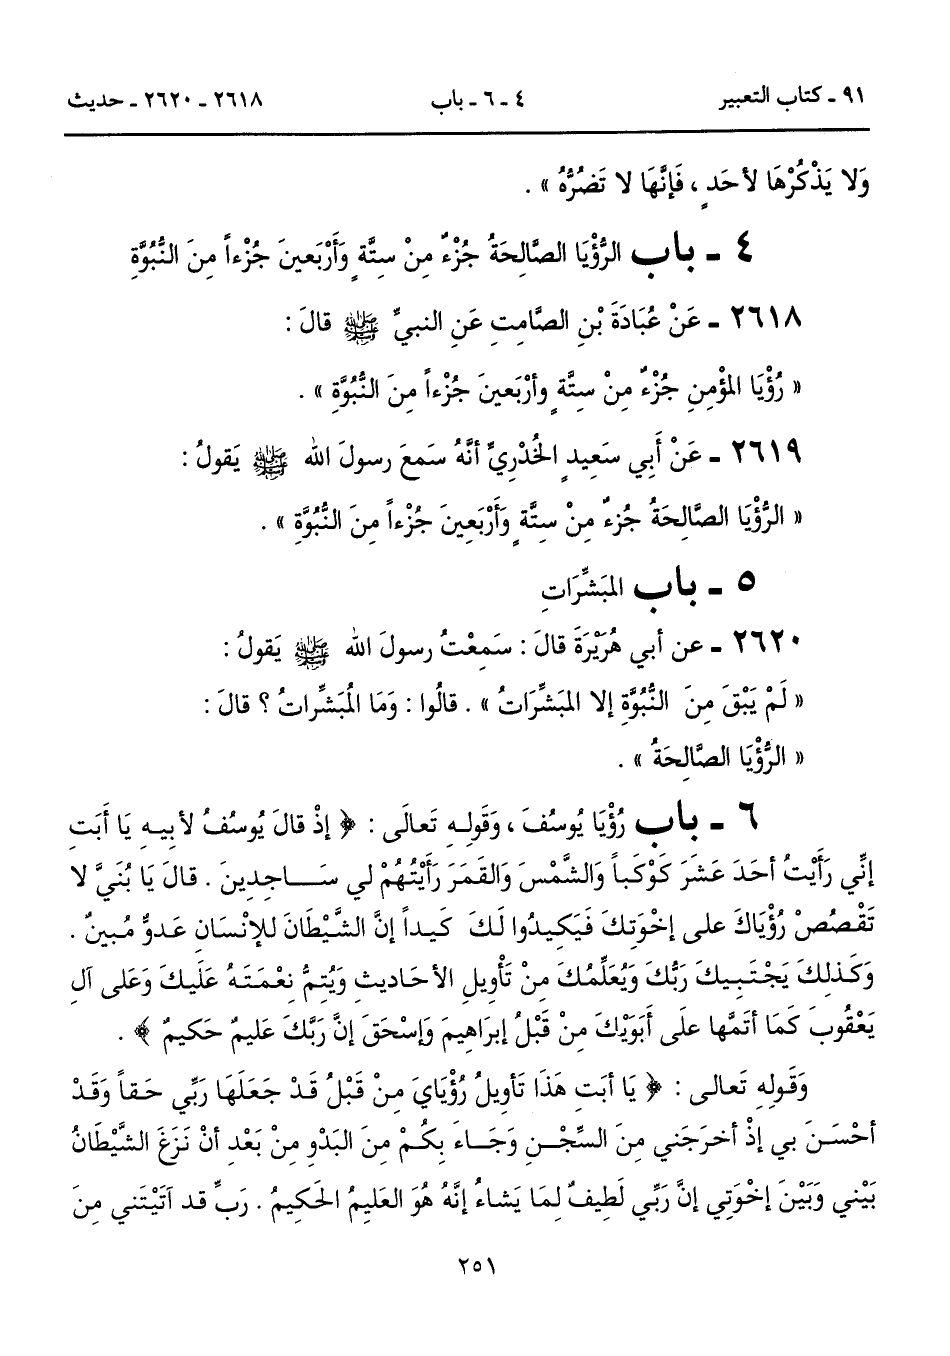 ٩١ ـ كتاب التعبير ٤ ـ ٦ ـ باب ٢٦١٨ ـ ٢٦٢٠ ـ حديث
وَلا يَذْكُرْهَا لأحَدٍ ، فَإِنَّهَا لا تَضُرُّهُ » .
٤ ـ باب الرُّؤْيَا الصَّالِحَةُ جُزْءٌ مِنْ سِتَّةٍ وَأَرْبَعينَ جُزْءاً مِنَ النُّبُوَّةِ
٢٦١٨ ـ عَنْ عُبَادَةَ بْنِ الصَّامِتِ عَنِ النبيِّ ﷺ قالَ :
« رُؤْيَا المؤْمِنِ جُزْءٌ مِنْ سِتَّةٍ وأرْبَعينَ جُزْءاً مِنَ النُّبُوَّةِ » .
٢٦١٩ ـ عَنْ أَبي سَعِيدٍ الخُدْرِيِّ أنَّهُ سَمعَ رسولَ الله ﷺ يَقولُ :
« الرُّؤْيَا الصَّالِحَةُ جُزءٌ مِنْ سِتَّةٍ وَأَرْبَعِينَ جُزْءاً مِنَ النُّبُوَّةِ » .
٥ ـ باب المبَشِّرَاتِ
٢٦٢٠ ـ عن أبي هُرَيْرَةَ قالَ : سَمِعْتُ رسولَ الله ﷺ يَقولُ :
« لَمْ يَبْقَ مِنَ النُّبُوَّةِ إلا المبَشِّرَاتُ » . قالُوا : وَمَا المُبَشِّراتُ ؟ قالَ :
« الرُّؤْيَا الصَّالِحَةُ » .
٦ ـ باب رُؤْيَا يُوسُفَ ، وَقَولِهِ تَعالَى : ﴿ إذْ قالَ يُوسُفُ لأبيهِ يَا أَبَتِ
إنِّي رَأَيْتُ أحَدَ عَشَرَ كَوْكَباً وَالشَّمْسَ وَالقَمَرَ رَأَيْتُهُمْ لي سَـاجِدِينَ . قالَ يَا بُنَيَّ لا
تَقْصُصْ رُؤْيَاكَ على إخْوَتِكَ فَيَكِيدُوا لَكَ كَيداً إنَّ الشَّيْطَانَ للإنْسَانِ عَدوٌّ مُبينٌ .
وَكَذلِكَ يَجْتَبيكَ رَبُّكَ وَيُعَلِّمُكَ مِنْ تَأْويلِ الأحَاديثِ وَيُتمُّ نِعْمَتَهُ عَلَيكَ وَعَلى آلِ
يَعْقُوبَ كَمَا أتمَّها علَى أَبَوَيْكَ مِنْ قَبْلُ إبرَاهِيمَ وَإسْحَقَ إنَّ رَبَّكَ عَليمٌ حَكيمٌ ﴾ .
وَقَولِهِ تَعالى : ﴿ يَا أبَتِ هَذَا تَأويلُ رُؤْيَايَ مِنْ قَبْلُ قَدْ جَعَلَهَا رَبِّي حَقاً وَقَدْ
أحْسَنَ بي إذْ أخرَجَني مِنَ السِّجْنِ وَجَاءَ بِكُمْ مِنَ البَدْوِ مِنْ بَعْدِ أنْ نَزَغَ الشَّيْطَانُ
بَيْني وَبَيْنَ إخْوَتِي إنَّ رَبِّي لَطيفٌ لِمَا يَشاءُ إنَّهُ هُوَ العَليمُ الحَكيمُ . رَبِّ قد آتَيْتَني مِنَ
٢٥١